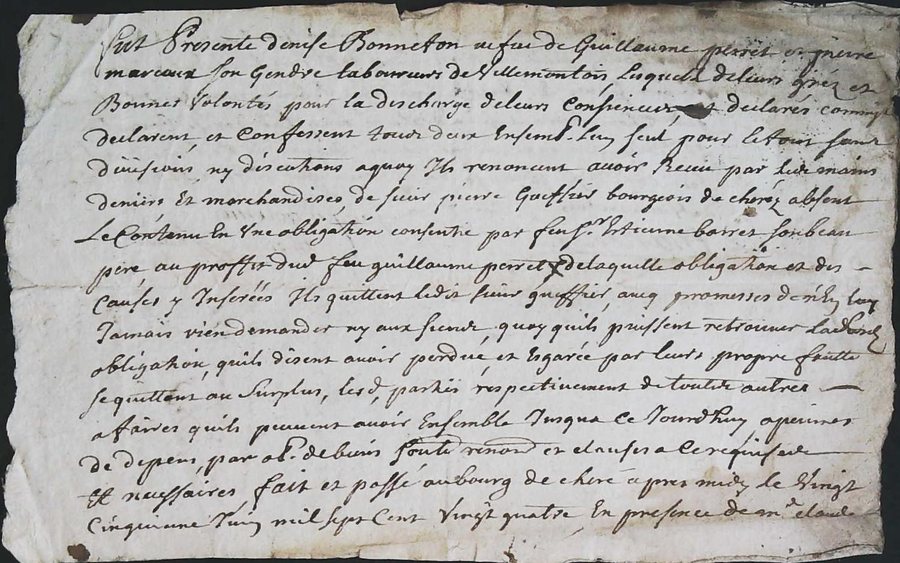 Fut Presente denise Bonneton vefue de Guillaume perret et pierre
mareaux son Gendre Laboureurs de Villemontois, Lesquels de leurs gréz et
Bonnes Volontés pour la discharge de leurs Consciences, ont declarés comme
declarent, et Confessent tous deux Ensemb. Lun seul, pour Le tout sans
diuisions, ny discutions a quoy Ils renoncent auoir Receu par les mains
deniers Et marchandises, de sieur pierre Gueffier bourgeois de cheréz absent
Le Contenu En Vne obligation consentie par feu sr. Estienne barret son beau
pere au proffit dud feu guillaume perret de laquelle obligation et des
Causes y Inserées Ils quittent Ledit sieur gueffier, aueq promesses de n'En
Jamais rien demander ny aux siens, quoy quils puissent retrouuer Lad.
obligation, quils disent auoir perdue, et Esgarée par leurs propre faulte
se quittent au surplus, lesd. parties respectiuement de toutes autres
affaires quils peuuent auoir Ensemble Jusqua Ce Jourdhuy a peines
de depens par obl. de biens Soub. renon et clauses a Ce requises
Et necessaires, fait et passé au bourg de cheré apres midy le Vingt
Cinquieme Juin mil sept Cent Vingt quatre En presence de claude